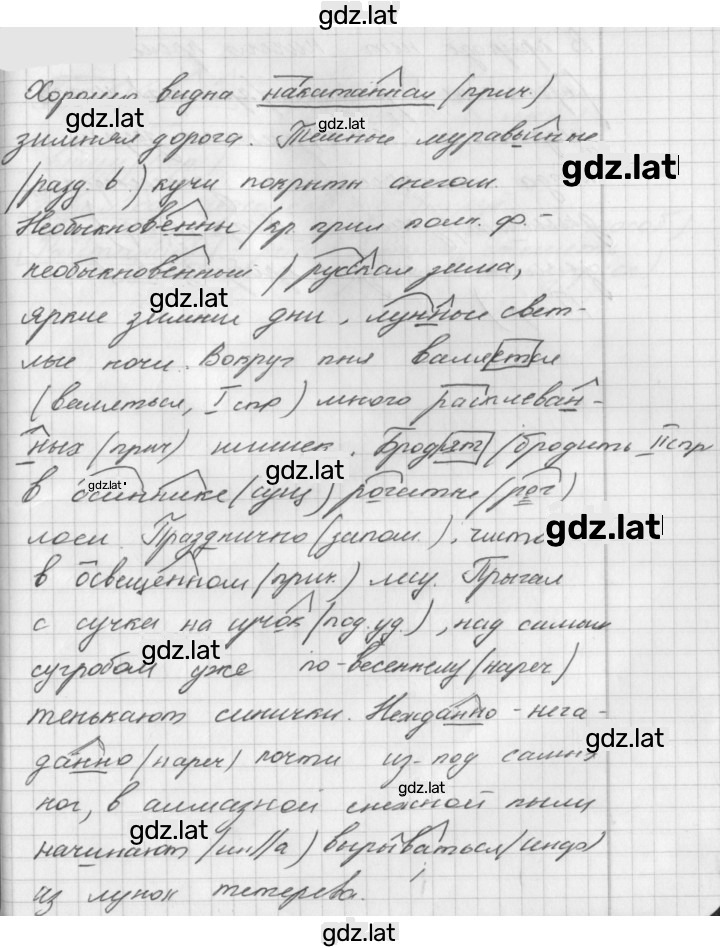 gdz.lat
Хорошо видна накатанная (прич.)
gdz.lat gdz.lat
зимняя дорога. Темные муравьиные
gdz.lat
(разд. ь) кучи покрыты снегом.
Необыкновенны (кр. прил полн. ф. -
необыкновенный) русская зима,
gdz.lat
яркие зимние дни, лунные свет-
лые ночи. Вокруг пня валяется
(валяться, I спр) много расплеван-
ных (прич) шишек. Бродят (бродить II спр
gdz.lat
в осиннике (сущ) рогатые (рог)
gdz.lat
лоси. Празднично (запом.), чисто
gdz.lat
в освещённом (прич.) лесу. Прыгая
с сучка на сучок (под. уд.), над самым
gdz.lat
сугробом уже по-весеннему (нареч)
тенькают синички. Нежданно-нега-
gdz.lat
данно (нареч) почти из-под самых
gdz.lat
ног, в алмазной снежной пыли
gdz.lat
начинают (ин//а) вырываться (инф)
из лунок тетерева.
gdz.lat